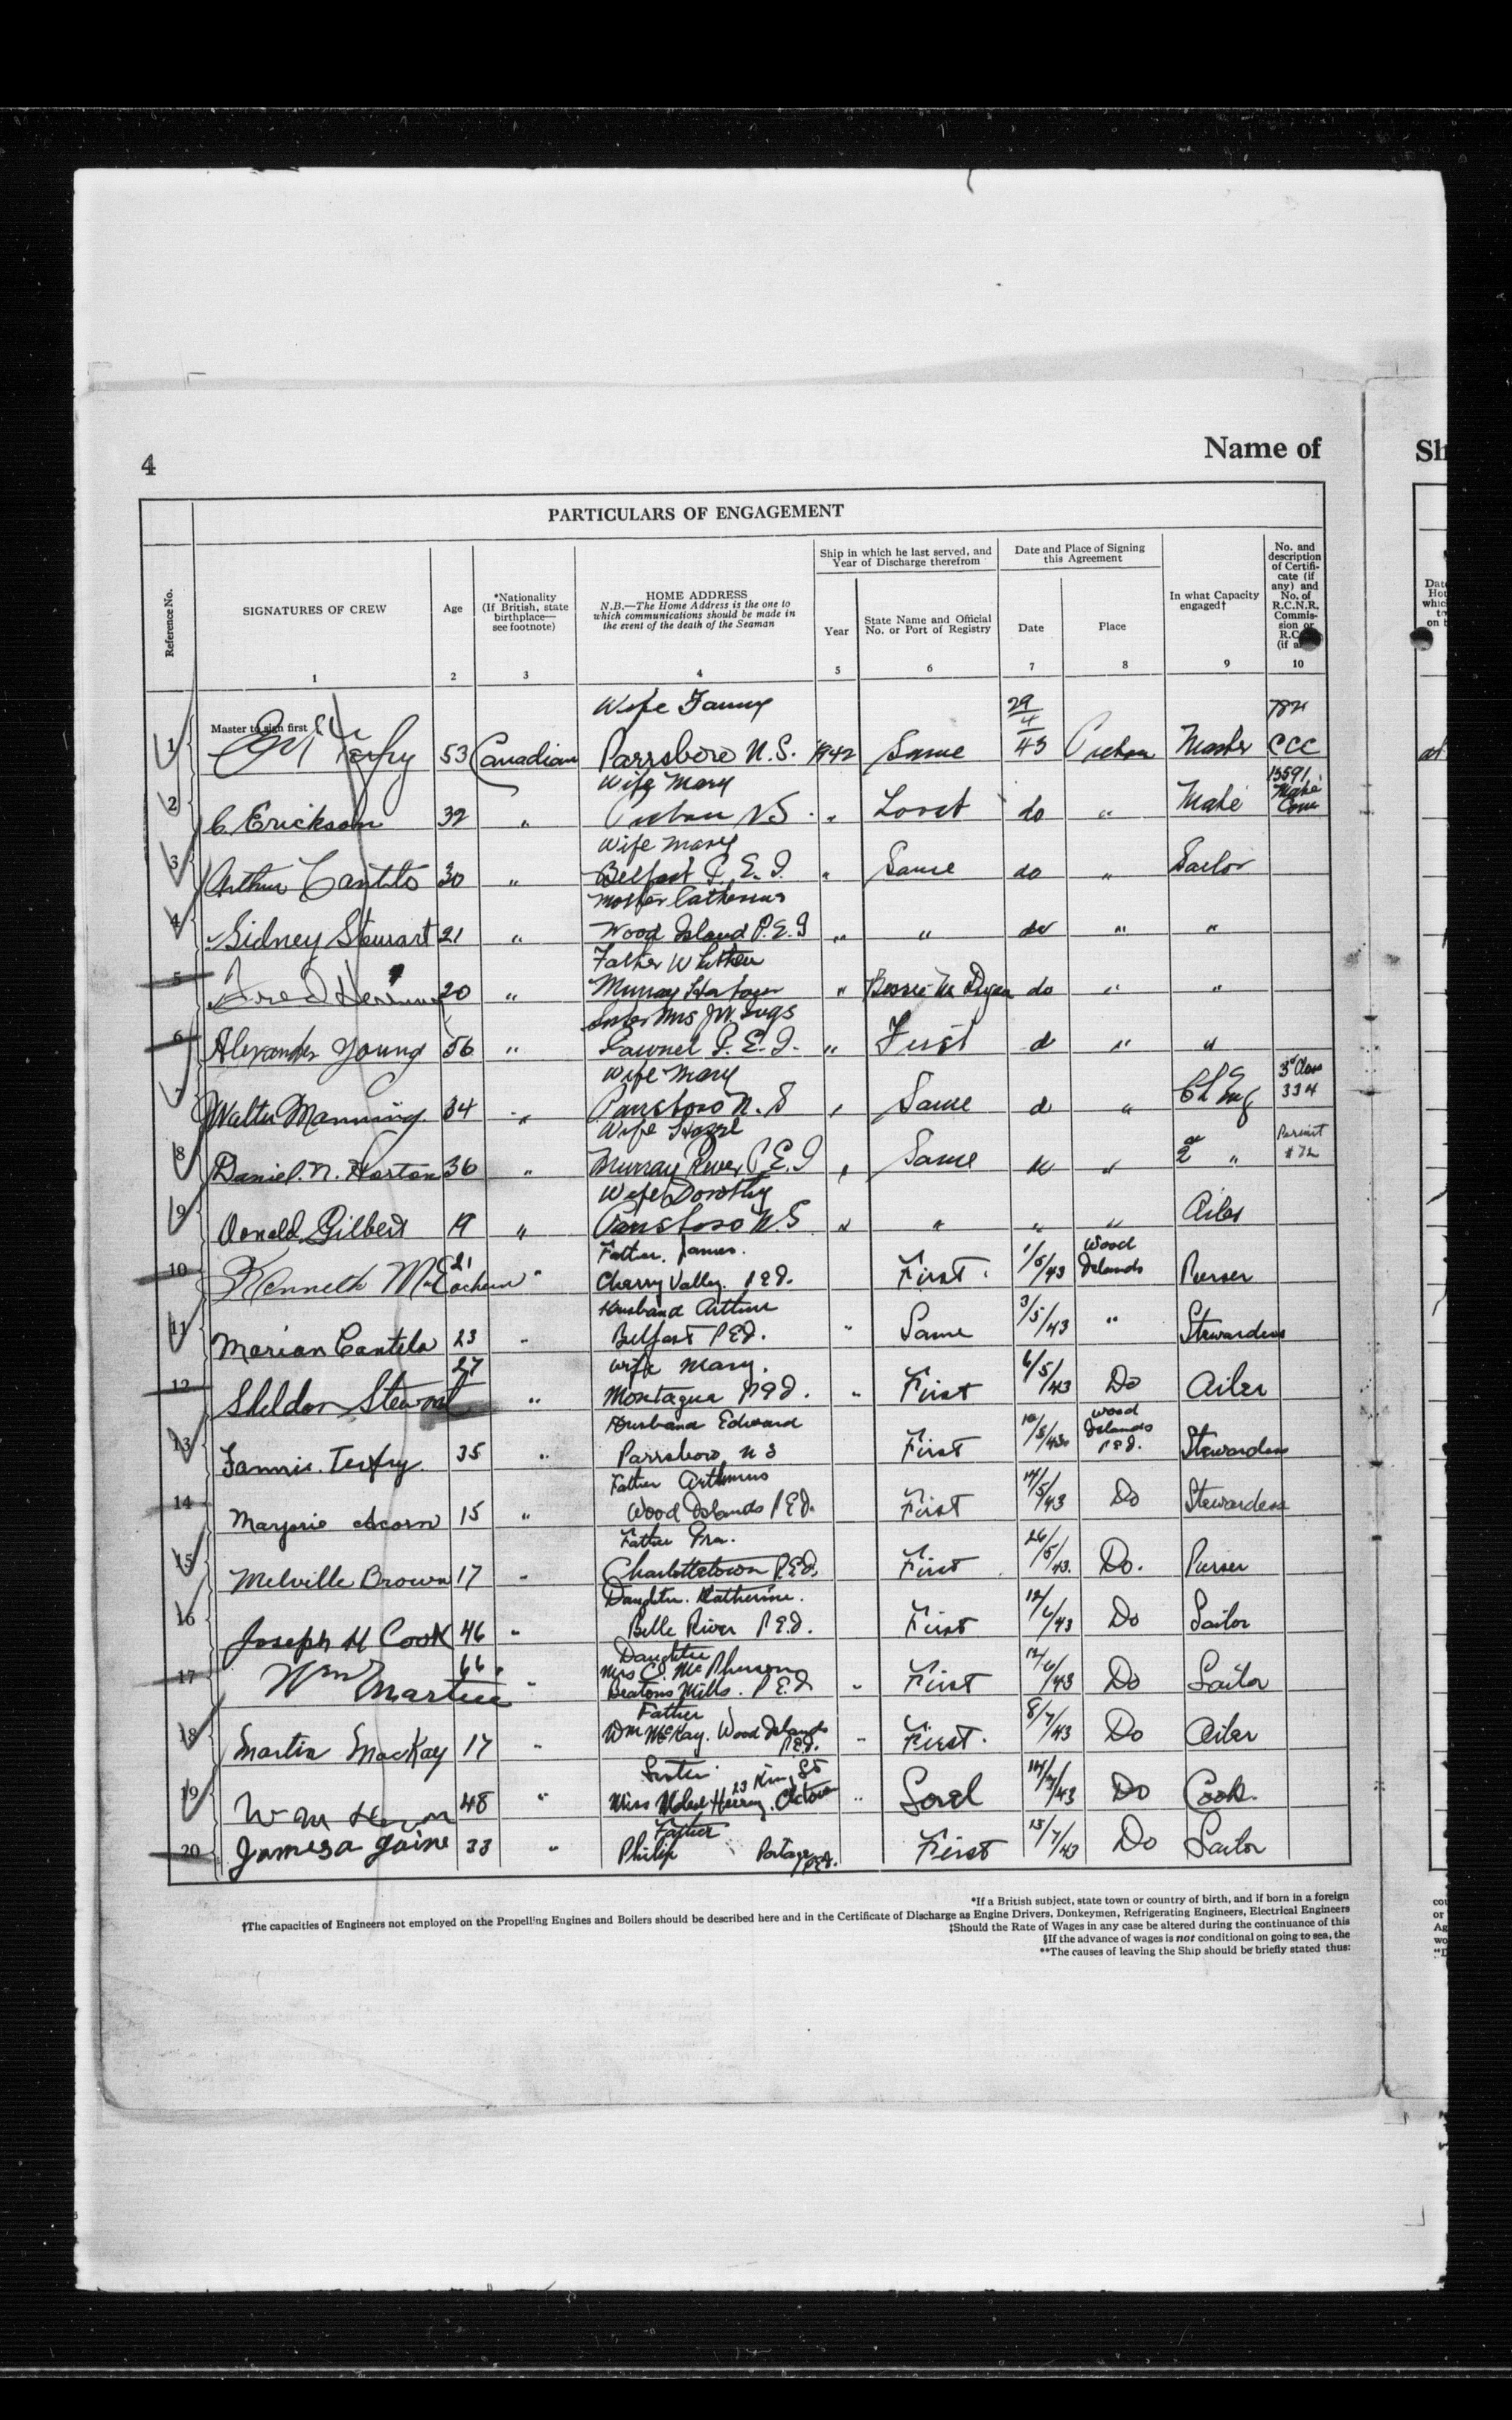 4
Name of
Sh
PARTICULARS OF ENGAGEMENT
Reference No.
SIGNATURES OF CREW
Age
*Nationality
(If British, state
birthplace—
see footnote)
HOME ADDRESS
N.B.—The Home Address is the one to
which communications should be made in
the event of the death of the Seaman
Ship in which he last served, and
Year of Discharge therefrom
Year
State Name and Official
No. or Port of Registry
Date and Place of Signing
this Agreement
Date
Place
In what Capacity
engaged†
No. and
description
of Certifi-
cate (if
any) and
No. of
R.C.N.R.
Commis-
sion or
R.C.
(if a
1 2 3 4 5 6 7 8 9 10
Master to sign first
Wife Fanny
1 53 Canadian Parrsboro N.S. 1942 Same 29/4/43 Master CCC
Wife Mary
2 C. Erickson 32 " N.S. " do " Mate 13591 Mate
Wife Mary
3 Arthur 30 " Belfast P.E.I. " Same do " Sailor
Mother Catherine
4 Sidney Stewart 21 " Wood Island P.E.I " " do " "
Father
5 Fred 20 " Murray Harbour " do " "
Sister Mrs J.W.
6 Alexander Young 56 " P.E.I. " First d " "
Wife Mary
7 Walter Manning 34 " N.S " Same d " Ch Eng 3rd Class 334
Wife
8 Daniel. N. Horton 36 " Murray River P.E.I " Same " 2nd " Permit #72
Wife Dorothy
9 Donald Gilbert 19 " N.S " " " " Oiler
Father. James.
10 Kenneth McEachern 21 " Cherry Valley. P.E.I. First. 1/5/43 Wood Islands Purser
Husband Arthur
11 Marian 23 " Belfast P.E.I. " Same 3/5/43 " Stewardess
Wife Mary.
12 Sheldon Stewart 27 " Montague P.E.I. " First 6/5/43 Do Oiler
Husband Edward
13 Fannie. 35 " Parrsboro N S First Wood Islands P.E.I. Stewardess
Father
14 Marjorie Acorn 15 " Wood Islands P.E.I. First 14/5/43 Do Stewardess
Father
15 Melville Brown 17 " Charlottetown P.E.I. First 26/5/43. Do. Purser
Daughter. Katherine.
16 Joseph H Cook 46 " Belle River P.E.I. First 12/6/43 Do Sailor
Daughter
17 Wm Martin 66 " Mrs McPherson Beatons Mills. P.E.I. " First 12/6/43 Do Sailor
Father
18 Martin MacKay 17 " Wm McKay. Wood Islands P.E.I. " First. 8/7/43 Do Oiler
Sister
19 Wm 48 " Miss 23 King St " 43 Do Cook.
Father
20 33 " Philip Portage P.E.I. First 13/7/43 Do Sailor
*If a British subject, state town or country of birth, and if born in a foreign
†The capacities of Engineers not employed on the Propelling Engines and Boilers should be described here and in the Certificate of Discharge as Engine Drivers, Donkeymen, Refrigerating Engineers, Electrical Engineers
‡Should the Rate of Wages in any case be altered during the continuance of this
§If the advance of wages is not conditional on going to sea, the
**The causes of leaving the Ship should be briefly stated thus: